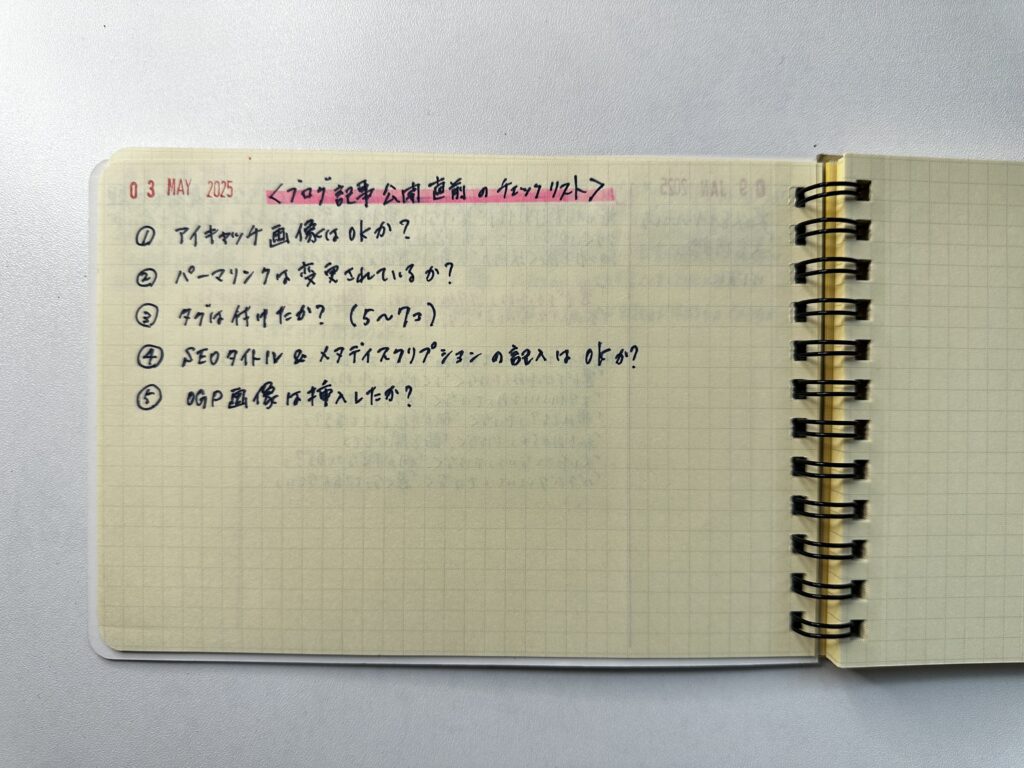 03 MAY 2025
<ブログ記事公開直前のチェックリスト>
① アイキャッチ画像はOKか?
② パーマリンクは変更されているか?
③ タグは付けたか? (5〜7コ)
④ SEOタイトル & メタディスクリプションの記入はOKか?
⑤ OGP画像は挿入したか?